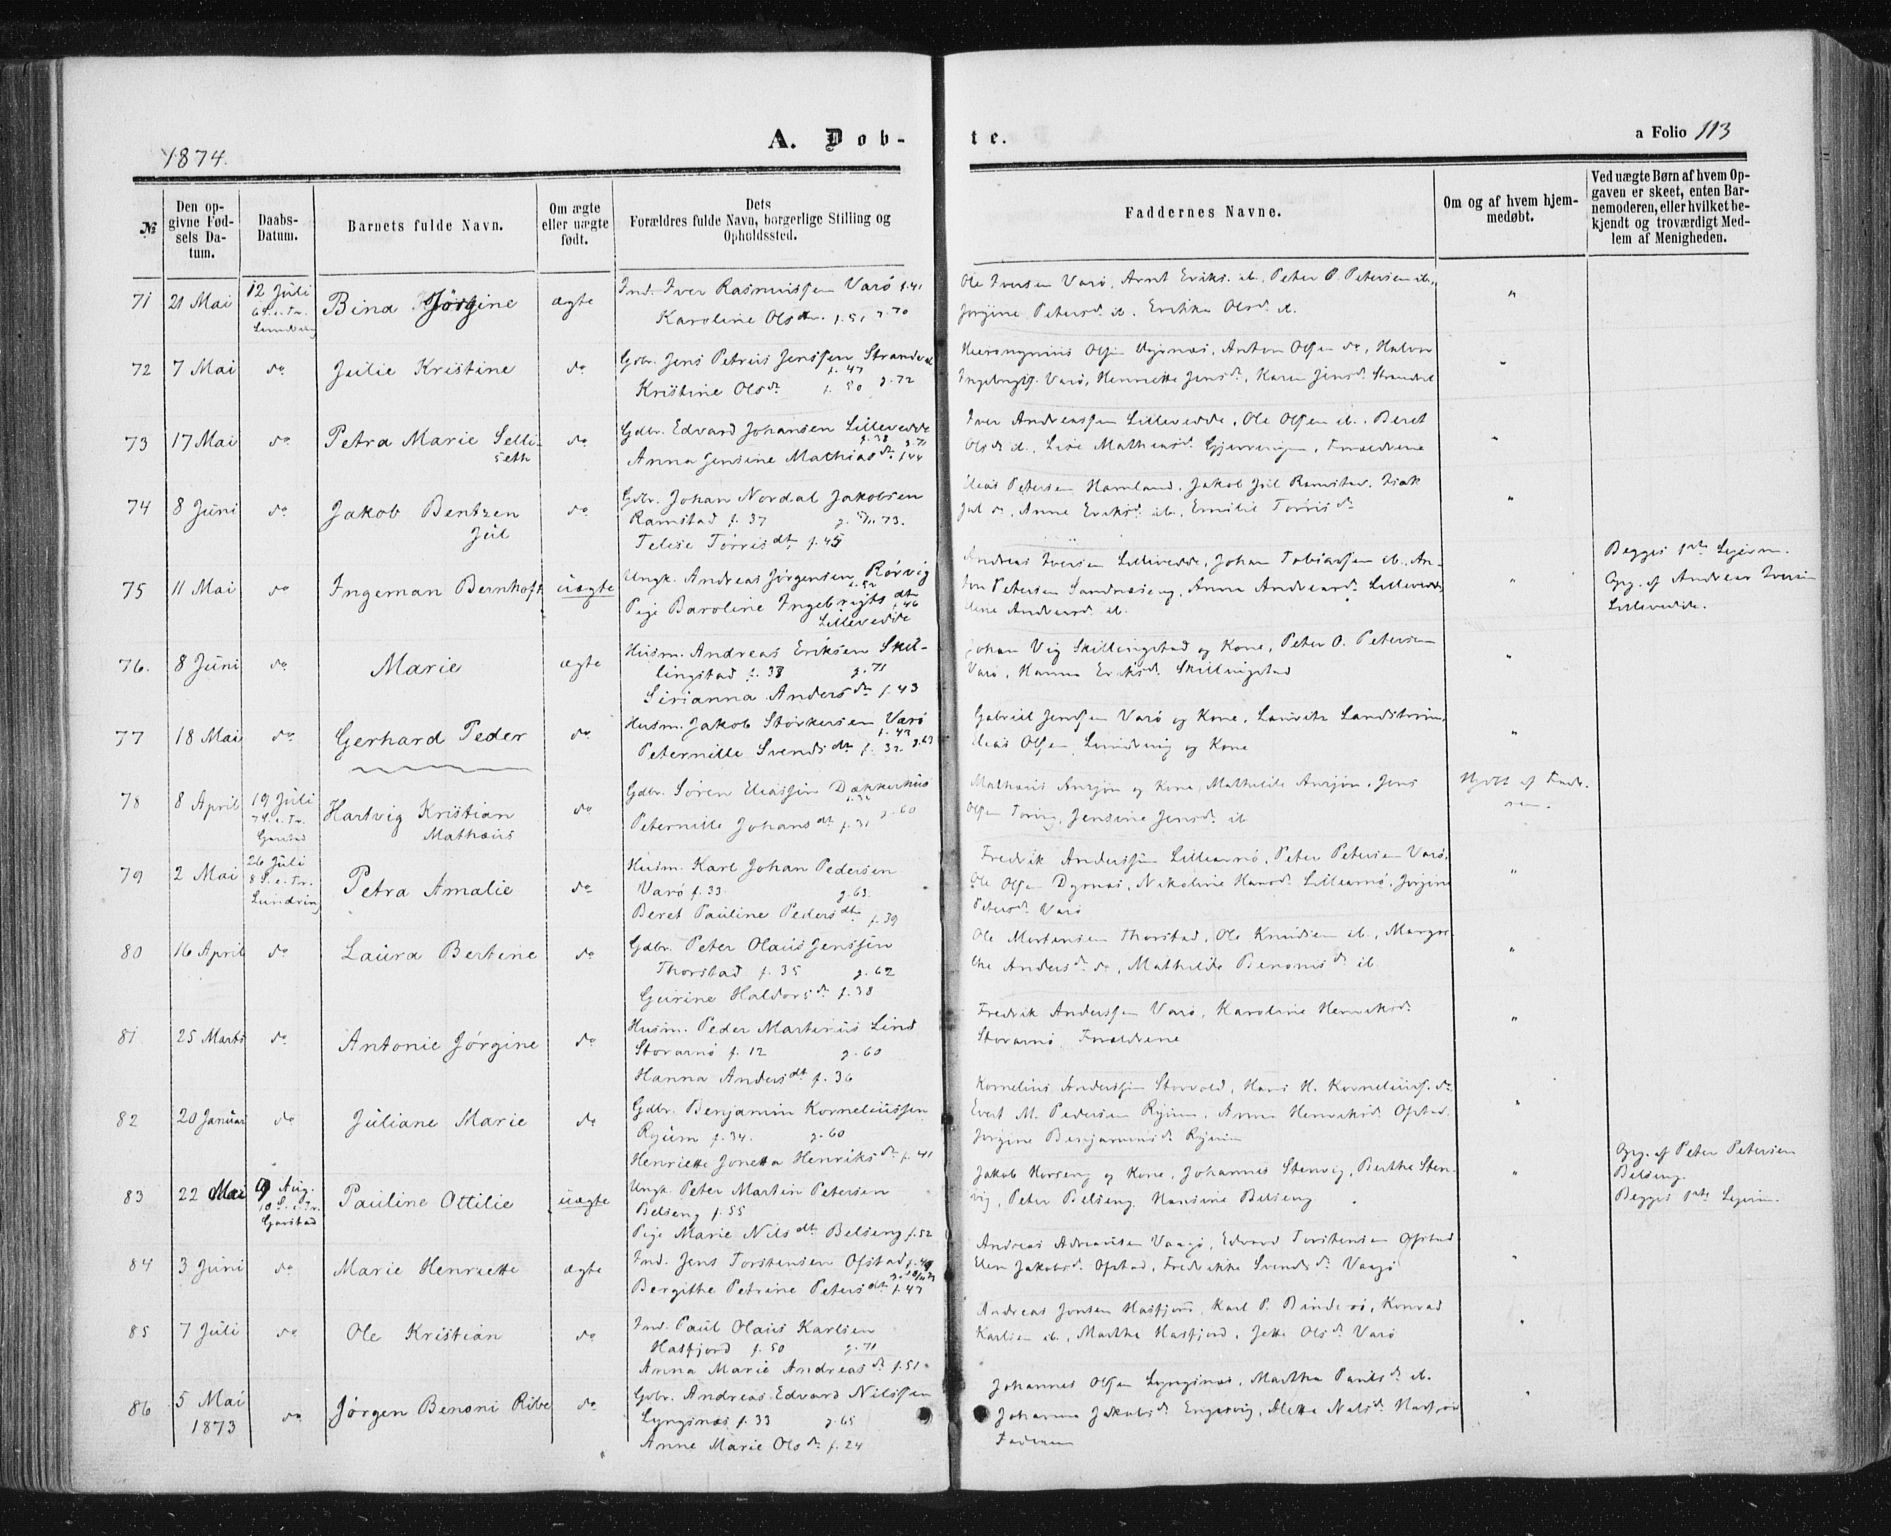 1874.
A. Døb-
te.
a Folio 113
№
Den op-
givne Fød-
sels Da-
tum.
Daabs-
Datum.
Barnets fulde Navn.
Om ægte
eller uægte
født.
Dets
Forældres fulde Navn, borgerlige Stilling og
Opholdssted.
Faddernes Navne.
Om og af hvem hjem-
medøbt.
Ved uægte Børn af hvem Op-
gaven er skeet, enten Bar-
nemoderen, eller hvilket be-
kjendt og troværdigt Med-
lem af Menigheden.
71 21 Mai 12 Juli
6 S. e. Tr.
Bina Jørgine ægte
Ind. Iver Rasmussen Varø f. 41
Karoline Olsdtr. f. 51 g. 70
Ole Iversen Varø, Arnt Eriks. ib., Peter P. Petersen ib.,
Jørgine Petersd. ib. Erikka Olsd. ib.
72 7 Mai do Julie Kristine do
Gdbr. Jens Petrus Jenssen Strandval
f. 47
Kristine Olsdr f. 50 g. 72
Hieronymus Olsen, Anton Olsen do, Halvor
Ingebrigts. Varø, Henriette Jensdr, Karen Jensdr Strandval
73 17 Mai do Petra Marie Selli-
seth do
Gdbr. Edvard Johansen Lillevedde
f. 38 g. 71
Anna Jensine Mathiasdr f. 44
Iver Andreassen Lillevedde, Ole Olsen ib. Beret
Olsdr ib., Lise Mathiasdr, Forældrene
74 8 Juni do Jakob Bentzen
Jul do
Gdbr. Johan Nordal Jakobsen
Ramstad f. 37 g. 73.
Telise Tørrisdt. f. 45
Elias Petersen Hamland, Jakob Jul Ramstad, Isak
Jul do, Anne Eriksdr ib., Emilie Tørrisdr
75 11 Mai do Ingeman Bernhoft uægte
Ungk. Andreas Jørgensen Rørvig
f. 52
Pige Baroline Ingebrigtsdt
f. 46
Lillevedde
Andreas Iversen Lillevedde, Johan Tobiassen ib. An-
ton Petersen, Anna Andreasdr Lillevedde
Andreasdr ib.
Begges 1ste Leierm.
Opg. af Andreas Iversen
Lillevedde.
76. 8 Juni do Marie ægte
Husm. Andreas Eriksen Skil-
lingstad f. 38 g. 71
Sirianna Andersdr f. 43
Johan Vig Skillingstad og Kone, Peter O. Petersen
Varø, Hanna Eriksdr Skillingstad
77 18 Mai do Gerhard Peder do
Husm. Jakob Størkersen Varø
f. 42
Peternille Svendsdtr f. 32 g. 63
Gabriel Jenssen Varø og Kone, Lauritz Landstrøm,
Elias Olsen Lundring og Kone
78 8 April 19 Juli
7 S. e. Tr.
Garstad
Hartvig Kristian
Mathæus do
Gdbr. Søren Eliassen Dækkerhus
Peternille Johansdt. f. 31 g. 60
Mathæus og Kone, Mathilde, Jens
Olsen, Jensine Jensdr ib
Hjdbt af
79 2 Mai 26 Juli
8 S. e. Tr.
Lundring
Petra Amalie do
Husm. Karl Johan Pedersen
Varø f. 33 g. 63.
Beret Pauline Pedersdtr f. 39
Fredrik Anderssen Lillearnø, Peter Petersen Varø,
Ole Olsen Dyrnæs, Nikoline Hansdr Lillearnø, Jørgine
Petersdr Varø
80 16 April do Laura Bertine do
Gdbr. Peter Olaus Jenssen
Thorstad f. 35 g. 62
Gurine Haldorsdr f. 38
Ole Mortensen Thorstad, Ole Knudsen ib., Margre-
the Andersdr do, Mathilde Benonisdr ib
81 25 Marts do Antonie Jørgine do
Husm. Peder Martinus Lind
Storarnø f. 12 g. 60
Hanna Andersdt f. 36
Fredrik Anderssen Varø, Karoline Henriksdr
Storarnø, Forældrene
82 20 Januar do Juliane Marie do
Gdbr. Benjamin Korneliussen
Ryum f. 34. g. 60
Henriette Jonetta Henriksdr f. 41
Kornelius Anderssen Storvold, Hans H. Korneliuss. do
Evert M. Pedersen Ryum, Anne Henriksdr Ofstad,
Jørgine Benjaminsdr Ryum
83 22 Mai 9 Aug.
10 S. e. Tr.
Garstad
Pauline Ottilie uægte
Ungk. Peter Martin Petersen
Belseng f. 55
Pige Marie Nilsdt. Belseng f. 52
Jakob Horseng og Kone, Johannes Stenvig, Berthe Sten-
vig, Peter Belseng, Hansine Belseng
Opg. af Peter Petersen
Belseng.
Begges 1ste Leierm.
84 3 Juni do Marie Henriette ægte
Ind. Jens Torstensen Ofstad f. 49
Bergithe Petrine Petersdtr f. 47
Andreas Adriansen Vaagø, Edvard Torstensen Ofstad
Elen Jakobsdr Ofstad, Fredrikke Svendsdr Vaagø
85 7 Juli do Ole Kristian do
Ind. Paul Olaus Karlsen
Hasfjord f. 50 g. 71
Anna Marie Andreasdr f. 51.
Andreas Jonsen Hasfjord, Karl P. Binderø, Konrad
Karlsen ib., Marthe Hasfjord, Jette Olsdr Varø
86 5 Mai
1873 do Jørgen Benoni Ribe do
Gdbr. Andreas Edvard Nilssen
Lyngsnæs f. 33 g. 65
Anne Marie Olsdr f. 24
Johannes Olsen Lyngsnæs, Martha Paulsdr ib.
Johanna Jakobsdr Engesvig, Alette Nilsdr
Faderen